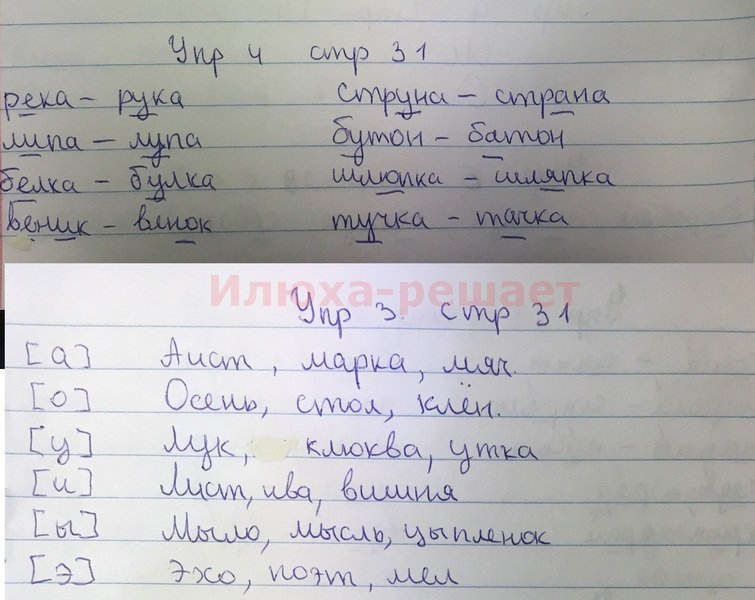 Упр 4 стр 31
река – рука струна – страна
липа – лупа бутон – батон
белка – булка шлюпка – шляпка
веник – венок тучка – тачка
Илюха-решает
Упр 3. стр 31
[а] Аист, марка, мяч.
[о] Осень, стол, клён.
[у] Лук, клюква, утка
[и] Лист, ива, вишня
[ы] Мыло, мысль, цыпленок
[э] эхо, поэт, мел